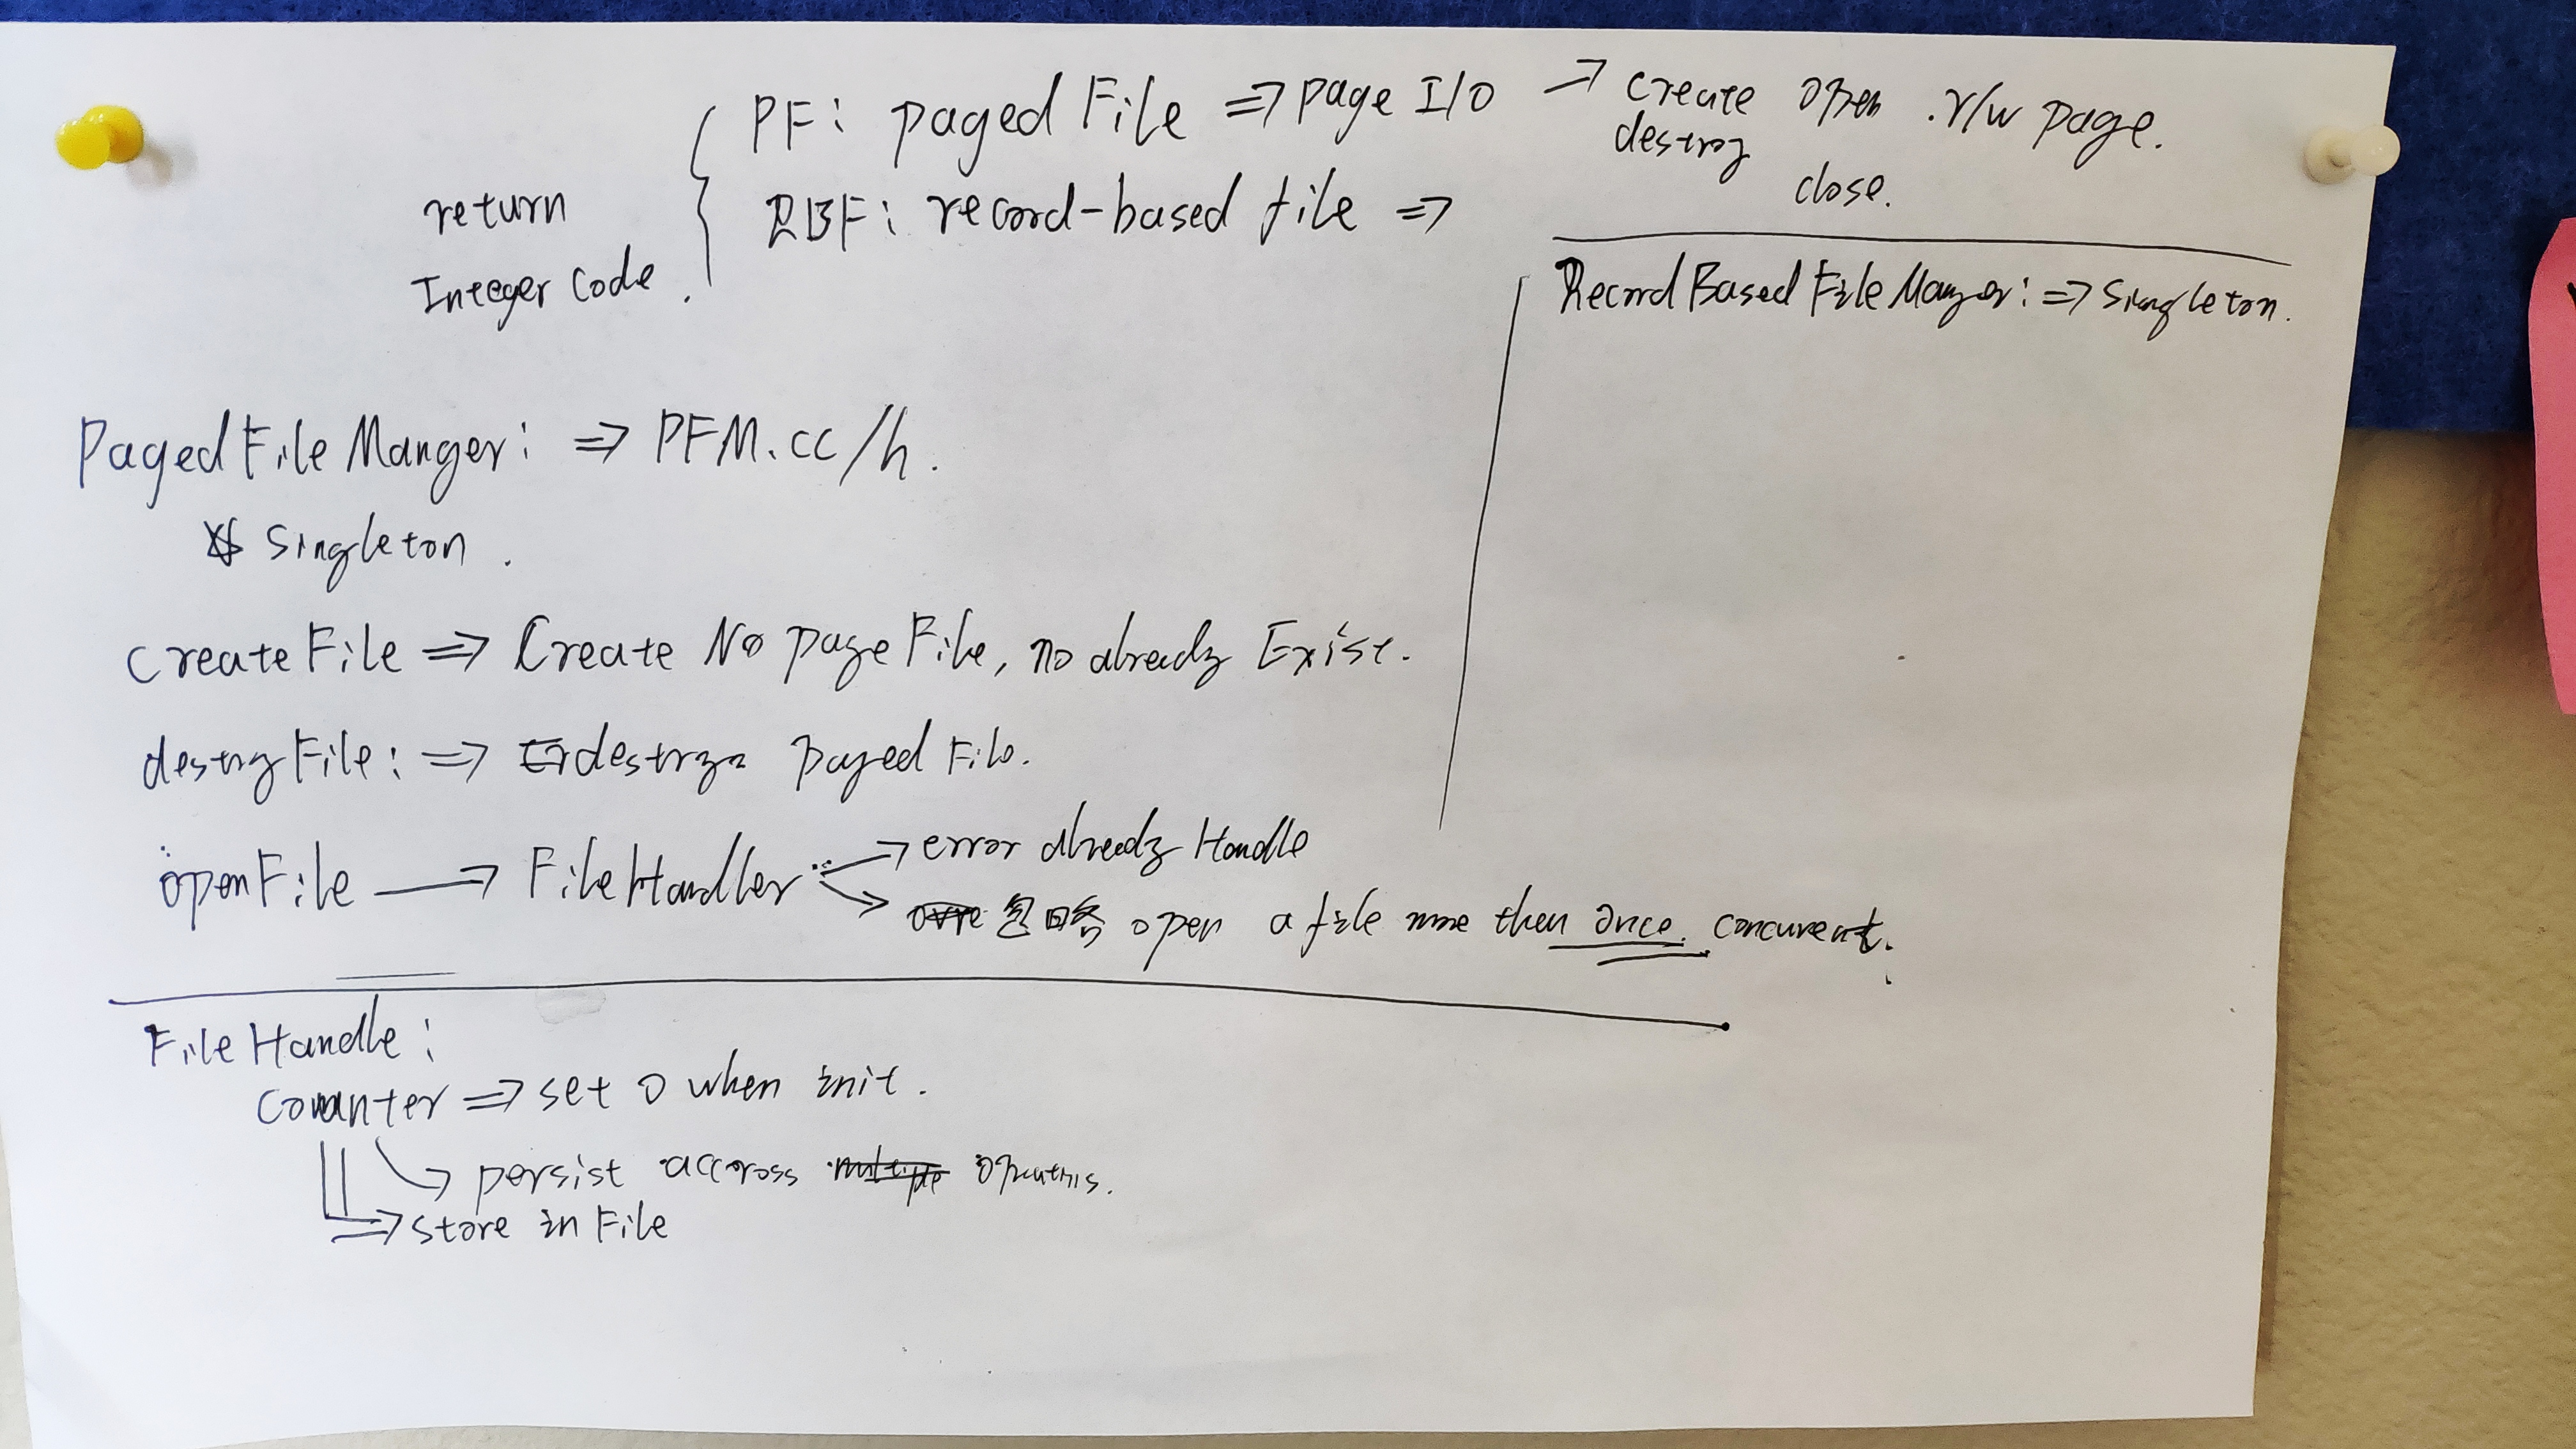 PF: paged File => page I/O -> create open . r/w page.
destroy
close.
return
Integer Code.
RBF: record-based file =>
RecordBasedFileManger: => Singleton.
PagedFileManger: => PFM.cc/h.
Singleton.
createFile => Create No page File, no already Exist.
destroyFile: => destroy a paged File.
openFile -> FileHandler -> error already Handle
-> 忽略 open a file more then once. concurrent.
FileHandle:
counter => set 0 when init.
-> persist accross operations.
=> store in File